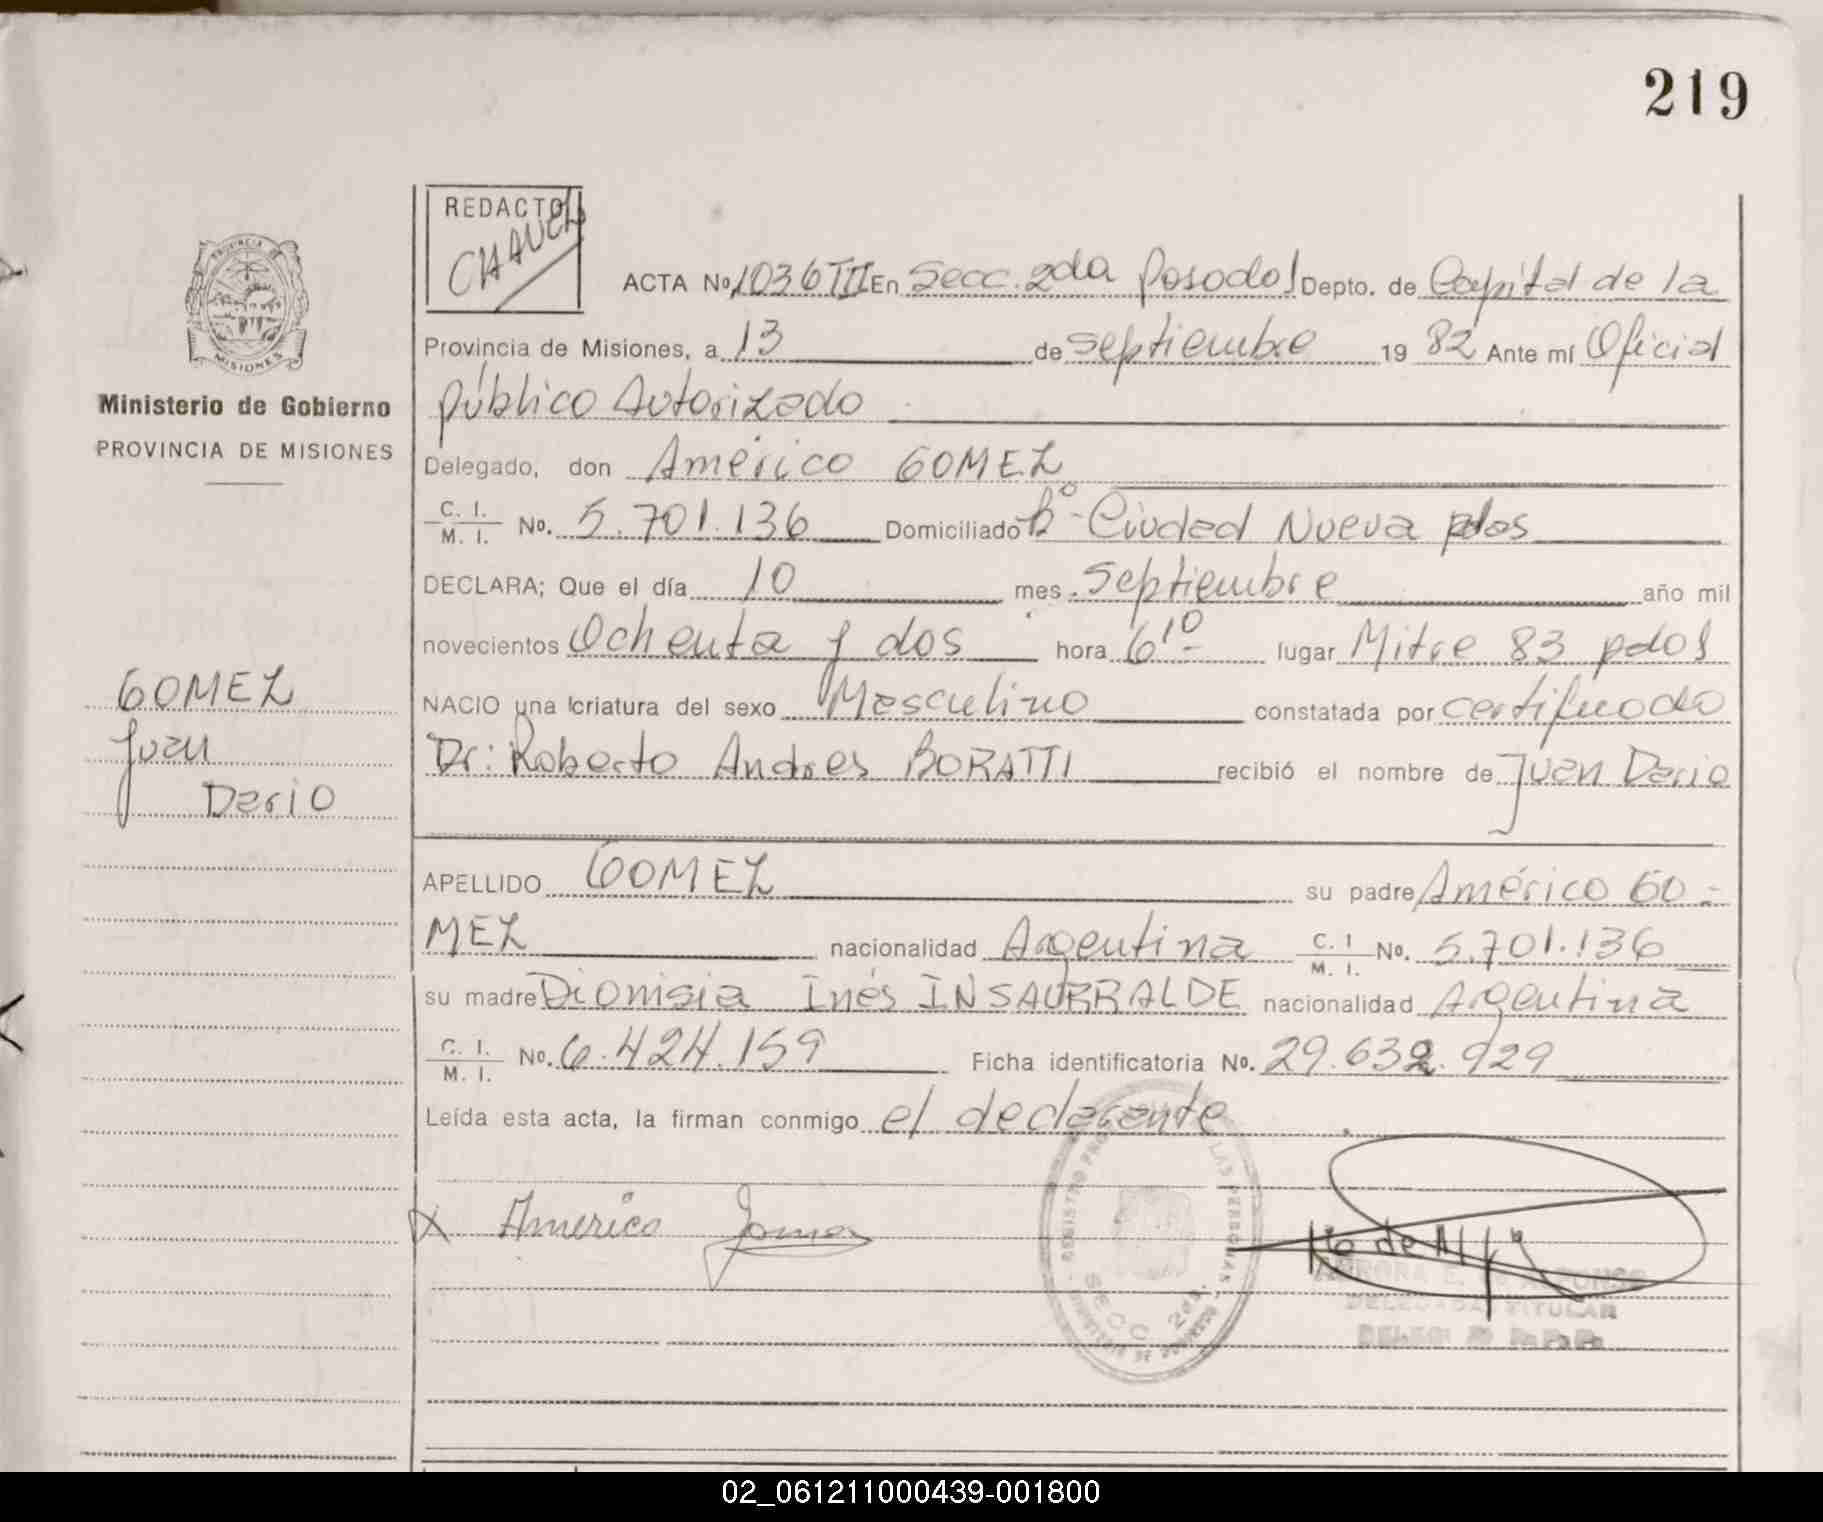 219
REDACTO
CHAVEZ
ACTA No 1036 TII En Secc. 2da Posadas Depto. de Capital de la
Provincia de Misiones, a 13 de Septiembre 19 82 Ante mí Oficial
Público Autorizado
PROVINCIA
MISIONES
Ministerio de Gobierno
PROVINCIA DE MISIONES
Delegado, don Américo GOMEZ
C. I.
M. I. No. 5.701.136 Domiciliado Bº- Ciudad Nueva pdas
DECLARA; Que el día 10 mes Septiembre año mil
novecientos Ochenta y dos hora 6 10 lugar Mitre 83 pdas
NACIO una criatura del sexo Masculino constatada por certificado
Dr: Roberto Andres BORATTI recibió el nombre de Juan Dario
GOMEZ
Juan
Dario
APELLIDO GOMEZ su padre Américo GO-
MEZ nacionalidad Argentina C. I. M. I. No. 5.701.136
su madre Dionisia Inés INSAURRALDE nacionalidad Argentina
C. I.
M. I. No. 6.424.159 Ficha identificatoria No. 29.632.929
Leída esta acta, la firman conmigo el declarante
X Americo Gomez
REGISTRO LAS PERSONAS
SECC 2da.
DELEGADA TITULAR
02_061211000439-001800